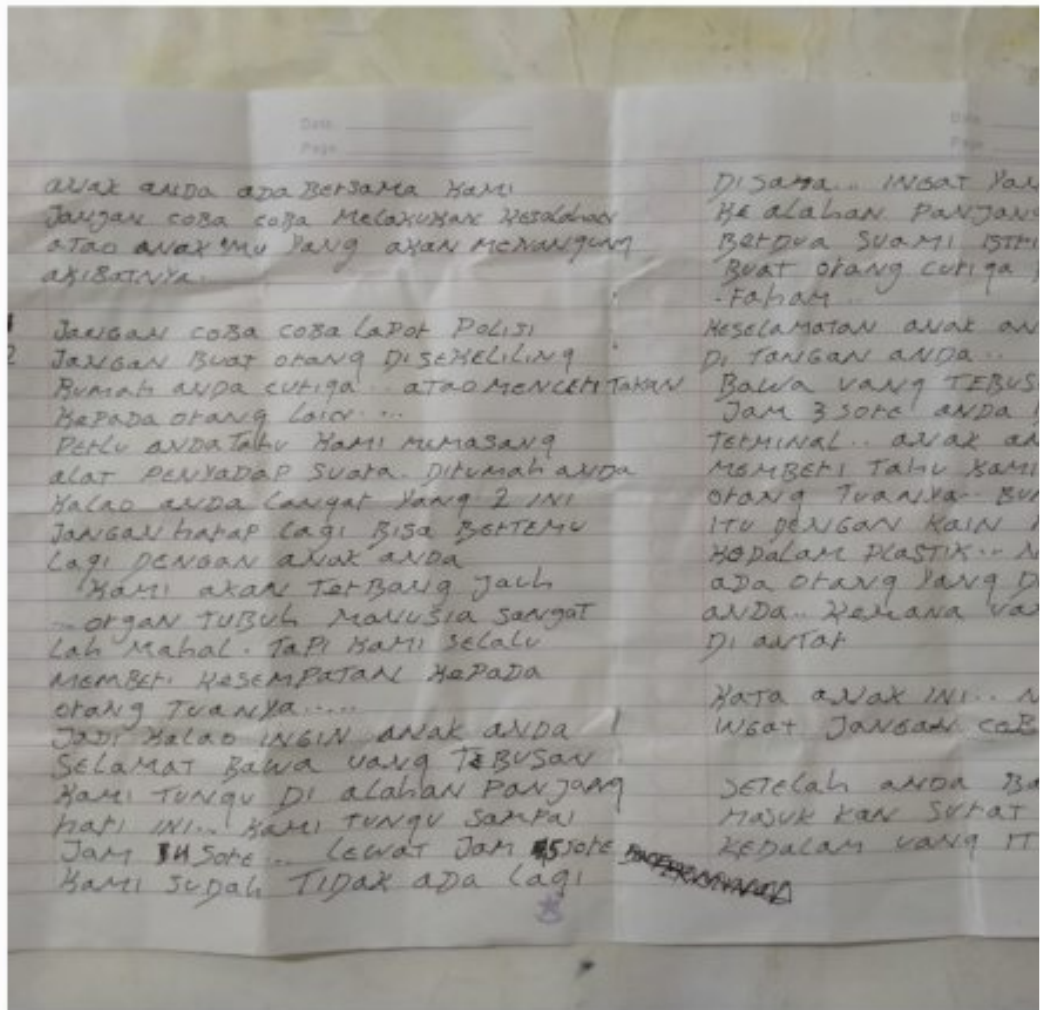 Date
Page
anak anda ada Bersama Kami
Jangan coBa coBa Melakukan Kesalahan
atao anak mu Yang akan Menangung
akibatnya
Jangan coBa coBa Lapor Polisi
2 Jangan Buat orang Disekeliling
Rumah anda curiga.. atao menceritakan
Kepada orang Lain...
Perlu anda Tahu Kami memasang
alat Penyadap suara Dirumah anda
Kalao anda Langar Yang 2 ini
Jangan harap Lagi Bisa Bertemu
Lagi Dengan anak anda
Kami akan Terbang Jauh
..organ Tubuh Manusia sangat
Lah Mahal. Tapi Kami selalu
memberi Kesempatan Kepada
orang Tuanya.....
Jadi Kalao ingin anak anda
Selamat Bawa uang TeBusan
Kami Tungu Di alahan Panjang
hari ini.. Kami Tungu Sampai
Jam Sore... Lewat Jam 5 Sore
Kami Sudah Tidak ada Lagi
Date
Page
Disana... ingat
Ke alahan Panjang
Berdua Suami
Buat orang curiga
-Faham..
Keselamatan anak
Di Tangan anda..
Bawa uang
Jam 3 sore anda
Terminal.. anak
Memberi Tahu Kami
orang Tuanya..
itu Dengan Kain
Kedalam Plastik..
ada orang Yang
anda.. Kemana
Di antar
Kata anak ini..
ingat Jangan
Setelah anda
Masuk kan Surat
Kedalam uang